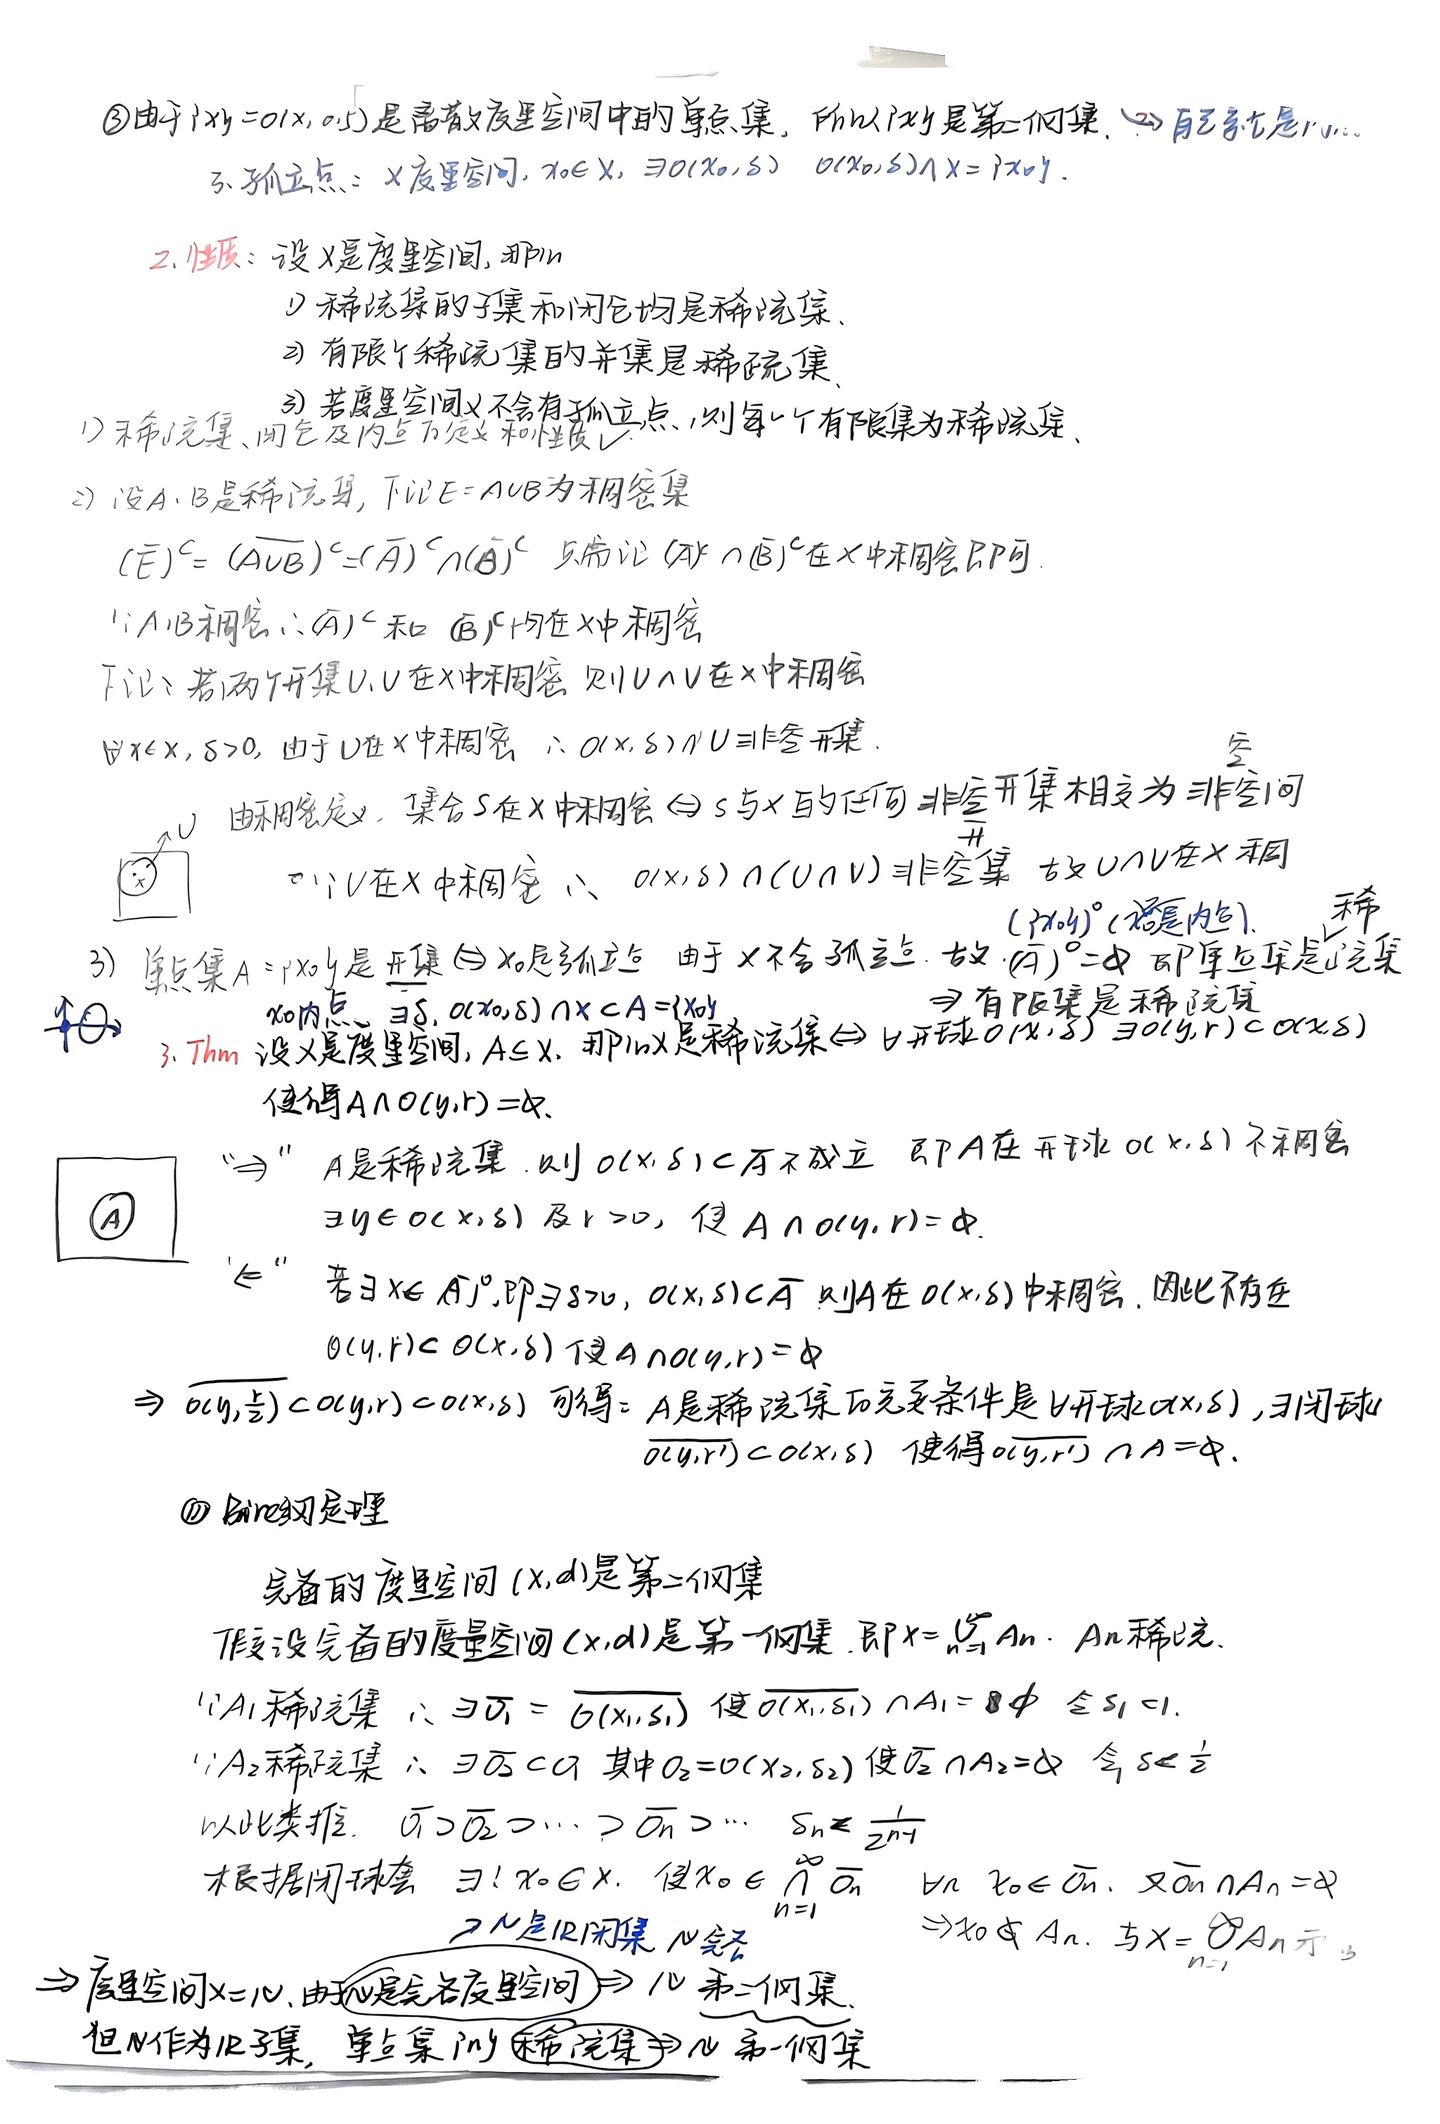 ③由于{x}=O(x,0.5)是离散度量空间中的单点集，所以{x}是第二纲集. → 自己就是
3.孤立点：X度量空间, x₀∈X, ∃O(x₀,δ) O(x₀,δ)∩X={x₀}.
2.性质：设X是度量空间,那么
1) 稀疏集的子集和闭包均是稀疏集.
2) 有限个稀疏集的并集是稀疏集.
3) 若度量空间X不含有孤立点,则每一个有限集为稀疏集.
1) 稀疏集、闭包及内点的定义和性质✓
2) 设A、B是稀疏集,下证E=A∪B为稠密集
(Ē)ᶜ=(\overline{A∪B})ᶜ=(Ā)ᶜ∩(B̄)ᶜ 只需证(Ā)ᶜ∩(B̄)ᶜ在X中稠密即可.
∵A,B稠密∴(Ā)ᶜ和(B̄)ᶜ均在X中稠密
下证：若两个开集U、V在X中稠密 则U∩V在X中稠密
∀x∈X, δ>0, 由于U在X中稠密 ∴O(x,δ)∩U非空开集.
空
由稠密定义. 集合S在X中稠密⇔S与X的任何非空开集相交为非空间
U
开
∵V在X中稠密 ∴ O(x,δ)∩(U∩V)非空集 故U∩V在X稠
({x₀})° (若是内点). 稀
3) 单点集A={x₀}是开集⇔x₀是孤立点 由于X不含孤立点.故(Ā)°=∅ 即单点集是疏集
x₀内点、∃δ, O(x₀,δ)∩X⊂A={x₀} ⇒有限集是稀疏集
3. Thm 设X是度量空间, A⊆X. 那么X是稀疏集⇔∀开球O(x,δ) ∃O(y,r)⊂O(x,δ)
使得A∩O(y,r)=∅.
“⇒” A是稀疏集.则O(x,δ)⊂Ā不成立 即A在开球O(x,δ)不稠密
A
∃y∈O(x,δ)及r>0, 使A∩O(y,r)=∅.
“⇐” 若∃x∈(Ā)°,即∃δ>0, O(x,δ)⊂Ā 则A在O(x,δ)中稠密. 因此不存在
O(y,r)⊂O(x,δ) 使A∩O(y,r)=∅
⇒ \overline{O(y,r/2)}⊂O(y,r)⊂O(x,δ) 可得：A是稀疏集的充要条件是∀开球O(x,δ),∃闭球
\overline{O(y,r')}⊂O(x,δ) 使得\overline{O(y,r')}∩A=∅.
⑪ Baire纲定理
完备的度量空间(X,d)是第二纲集
假设完备的度量空间(X,d)是第一纲集.即X=∪_{n=1}^{∞}An. An稀疏.
∵A₁稀疏集 ∴∃Ō₁=\overline{O(x₁,δ₁)} 使\overline{O(x₁,δ₁)}∩A₁=∅ 令δ₁<1.
∵A₂稀疏集 ∴∃Ō₂⊂O₁ 其中O₂=O(x₂,δ₂)使Ō₂∩A₂=∅ 令δ<1/2
以此类推. Ō₁⊃Ō₂⊃…⊃Ōn⊃… δn<1/2ⁿ⁻¹
根据闭球套 ∃!x₀∈X. 使x₀∈∩_{n=1}^{∞}Ōn ∀n x₀∈Ōn. 又Ōn∩An=∅
⇒x₀∉An. 与X=∪_{n=1}^{∞}An矛盾
→N是R闭集 N完备
⇒度量空间X=N.由于N是完备度量空间⇒N第二纲集.
但N作为R子集, 单点集{n}稀疏集⇒N第一纲集